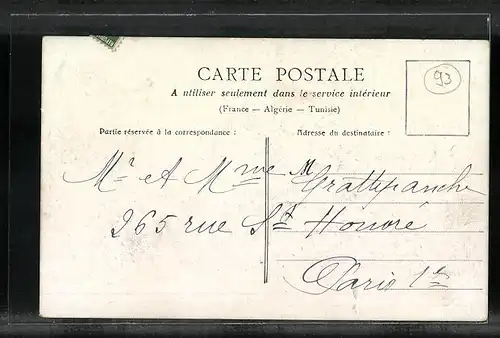 CARTE POSTALE
A utiliser seulement dans le service intérieur
(France — Algérie — Tunisie)
93
Partie réservée à la correspondance :
Adresse du destinataire :
Mr et Mme M Grattepanche
265 rue St Honoré
Paris 1er